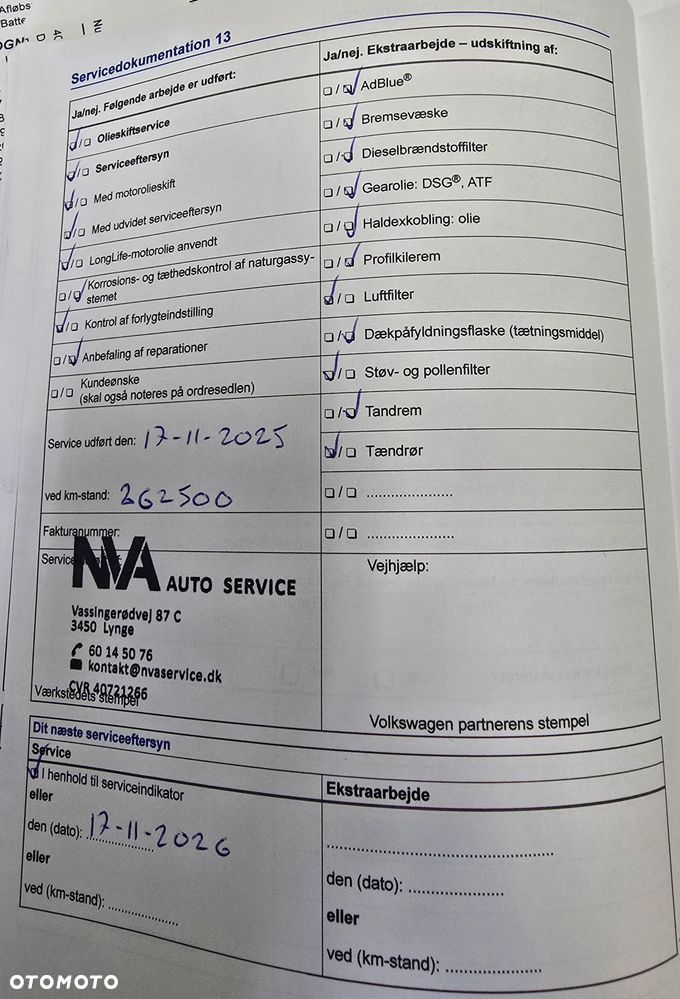 Afløbs
Batte
Servicedokumentation 13
Ja/nej. Følgende arbejde er udført:
☑/☐ Olieskiftservice
☑/☐ Serviceeftersyn
☑/☐ Med motorolieskift
☑/☐ Med udvidet serviceeftersyn
☑/☐ LongLife-motorolie anvendt
☐/☑ Korrosions- og tæthedskontrol af naturgassy-
stemet
☑/☐ Kontrol af forlygteindstilling
☐/☑ Anbefaling af reparationer
☐/☐ Kundeønske
(skal også noteres på ordresedlen)
Service udført den: 17-11-2025
ved km-stand: 262500
Fakturanummer:
Service
NVA AUTO SERVICE
Vassingerødvej 87 C
3450 Lynge
60 14 50 76
kontakt@nvaservice.dk
CVR 40721266
Værkstedets stempel
Ja/nej. Ekstraarbejde – udskiftning af:
☐/☑ AdBlue®
☐/☑ Bremsevæske
☐/☑ Dieselbrændstoffilter
☐/☑ Gearolie: DSG®, ATF
☐/☑ Haldexkobling: olie
☐/☑ Profilkilerem
☑/☐ Luftfilter
☐/☑ Dækpåfyldningsflaske (tætningsmiddel)
☑/☐ Støv- og pollenfilter
☐/☑ Tandrem
☑/☐ Tændrør
☐/☐ .....................
☐/☐ .....................
Vejhjælp:
Volkswagen partnerens stempel
Dit næste serviceeftersyn
Service
☑ I henhold til serviceindikator
eller
den (dato): 17-11-2026
eller
ved (km-stand): ................
Ekstraarbejde
.....................................................
den (dato): ......................
eller
ved (km-stand): ......................
OTOMOTO